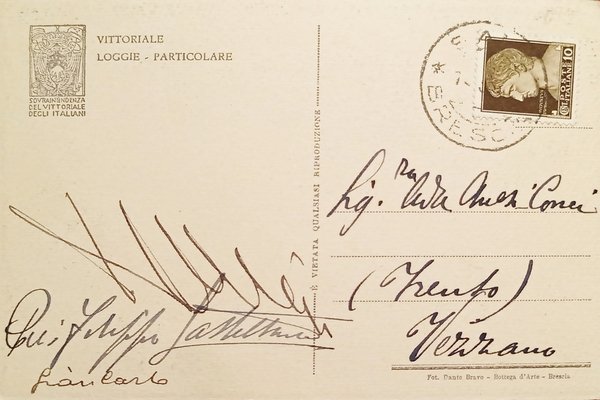 VITTORIALE
LOGGIE - PARTICOLARE
SOVRAINTENDENZA
DEL VITTORIALE
DEGLI ITALIANI
BRESC
10
POSTE
ITALIANE
È VIETATA QUALSIASI RIPRODUZIONE
Sig.ra Ada
(Trento)
Vezzano
Filippo
Giancarlo
Fot. Dante Bravo - Bottega d'Arte - Brescia